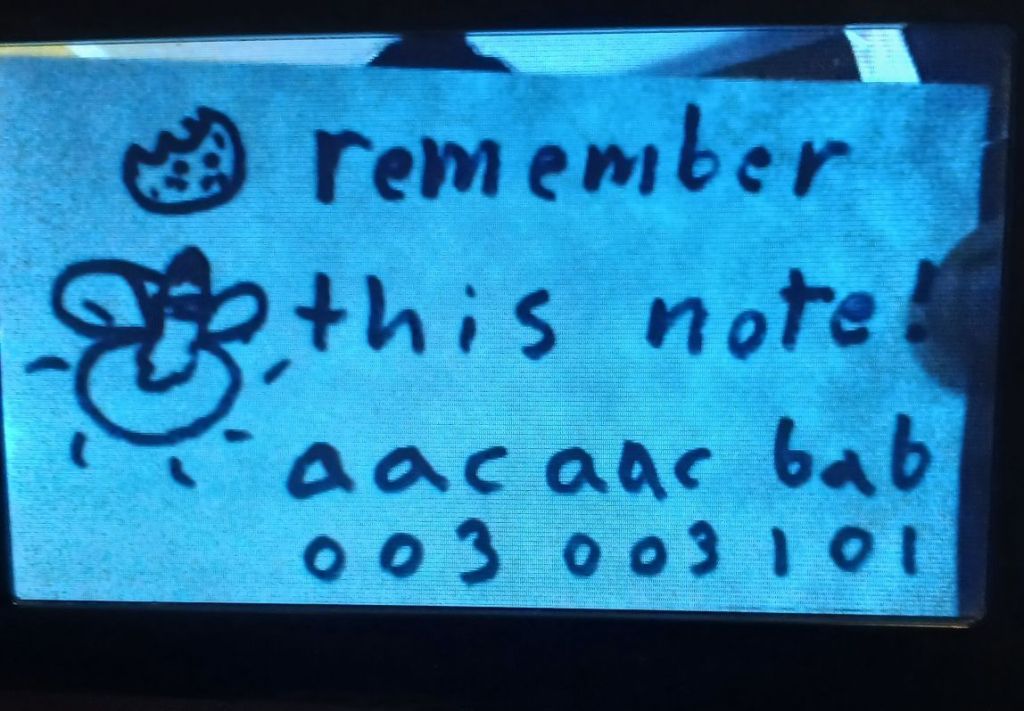 remember
this note!
aac aac bab
003 003 101